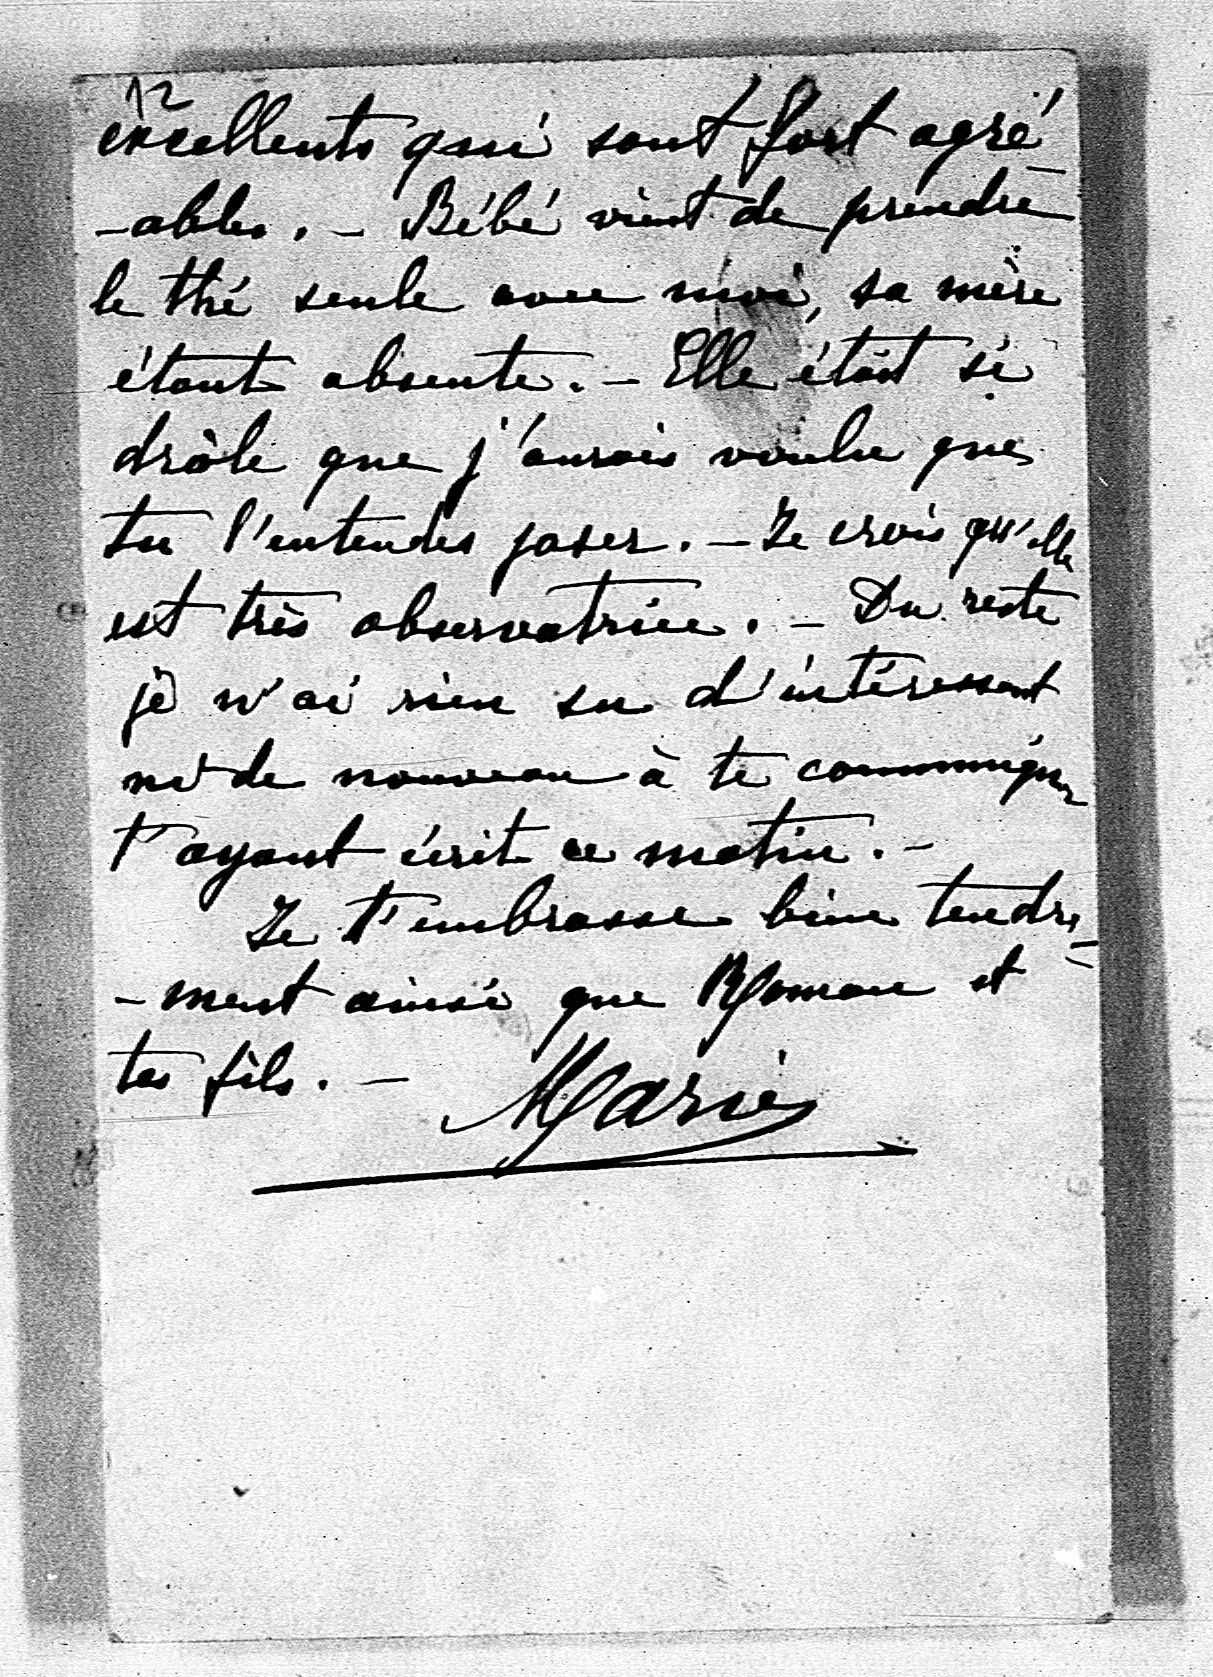 12
excellents qui sont fort agré
-ables. - Bébé vient de prendre
le thé seule avec moi, sa mère
étant absente. - Elle était si
drôle que j'aurais voulu que
tu l'entendes jaser. - Je crois qu'elle
est très observatrice. - Du reste
je n'ai rien su d'intéressant
ni de nouveau à te communiquer
t'ayant écrit ce matin. -
Je t'embrasse bien tendre-
-ment ainsi que Roman et
tes fils. - Marie